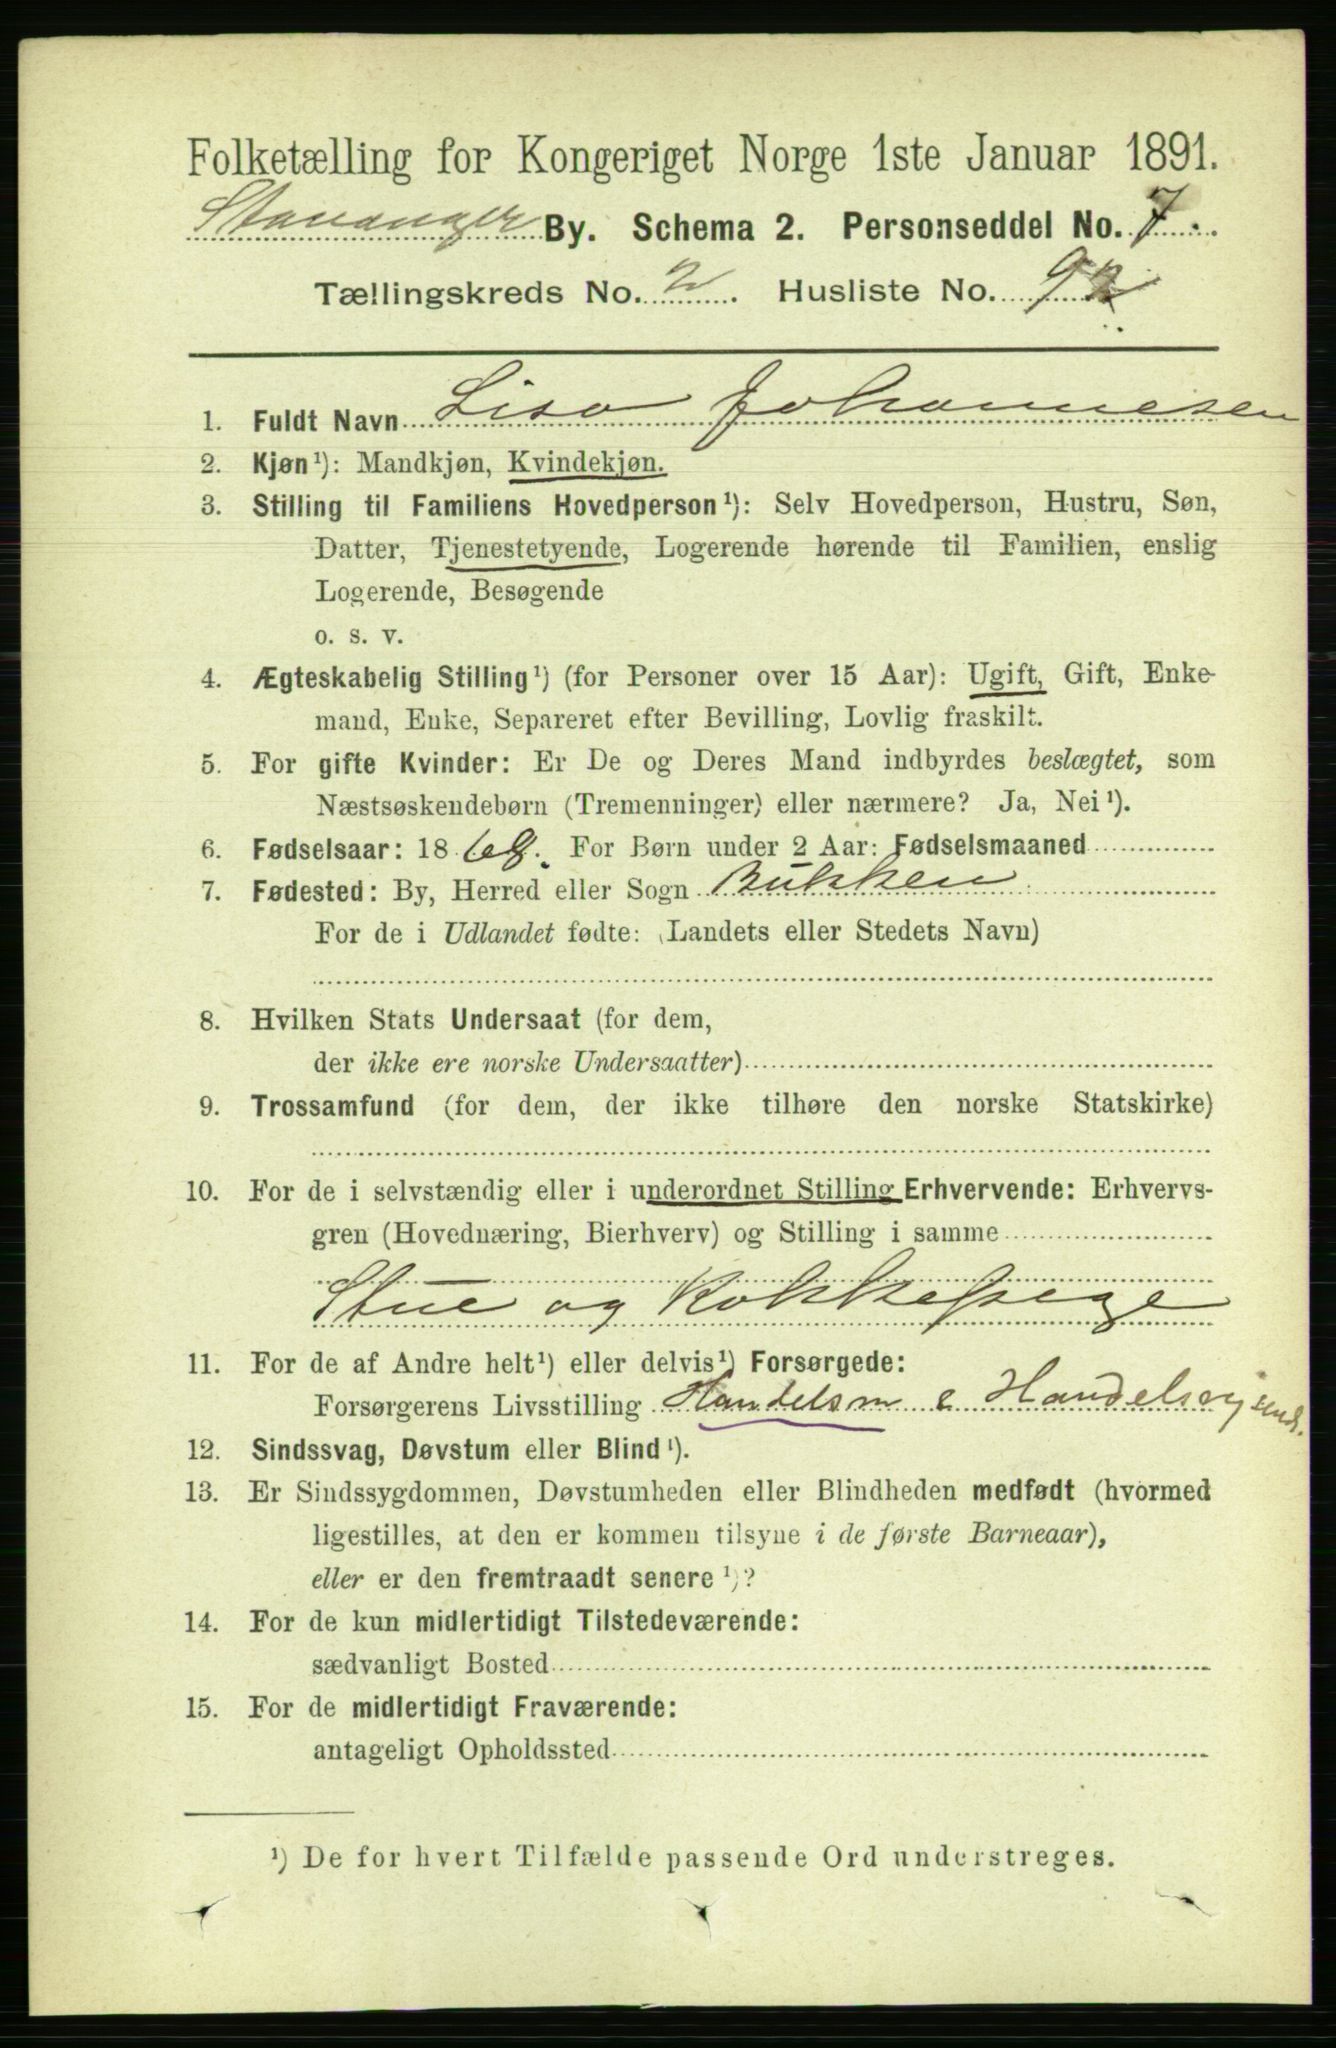 Folketælling for Kongeriget Norge 1ste Januar 1891.
Stavanger By. Schema 2. Personseddel No. 7.
Tællingskreds No. 2. Husliste No. 92
1. Fuldt Navn Lisa Johannesen
2. Kjøn¹): Mandkjøn, Kvindekjøn.
3. Stilling til Familiens Hovedperson¹): Selv Hovedperson, Hustru, Søn,
Datter, Tjenestetyende, Logerende hørende til Familien, enslig
Logerende, Besøgende
o. s. v.
4. Ægteskabelig Stilling¹) (for Personer over 15 Aar): Ugift, Gift, Enke-
mand, Enke, Separeret efter Bevilling, Lovlig fraskilt.
5. For gifte Kvinder: Er De og Deres Mand indbyrdes beslægtet, som
Næstsøskendebørn (Tremenninger) eller nærmere? Ja, Nei¹).
6. Fødselsaar: 1868. For Børn under 2 Aar: Fødselsmaaned
7. Fødested: By, Herred eller Sogn Bukken
For de i Udlandet fødte: (Landets eller Stedets Navn)
8. Hvilken Stats Undersaat (for dem,
der ikke ere norske Undersaatter)
9. Trossamfund (for dem, der ikke tilhøre den norske Statskirke)
10. For de i selvstændig eller i underordnet Stilling Erhvervende: Erhvervs-
gren (Hovednæring, Bierhverv) og Stilling i samme
Stue og Kokkepige
11. For de af Andre helt¹) eller delvis¹) Forsørgede:
Forsørgerens Livsstilling Handelsm e Handelsrejsend.
12. Sindssvag, Døvstum eller Blind¹).
13. Er Sindssygdommen, Døvstumheden eller Blindheden medfødt (hvormed
ligestilles, at den er kommen tilsyne i de første Barneaar),
eller er den fremtraadt senere¹)?
14. For de kun midlertidigt Tilstedeværende:
sædvanligt Bosted
15. For de midlertidigt Fraværende:
antageligt Opholdssted
¹) De for hvert Tilfælde passende Ord understreges.